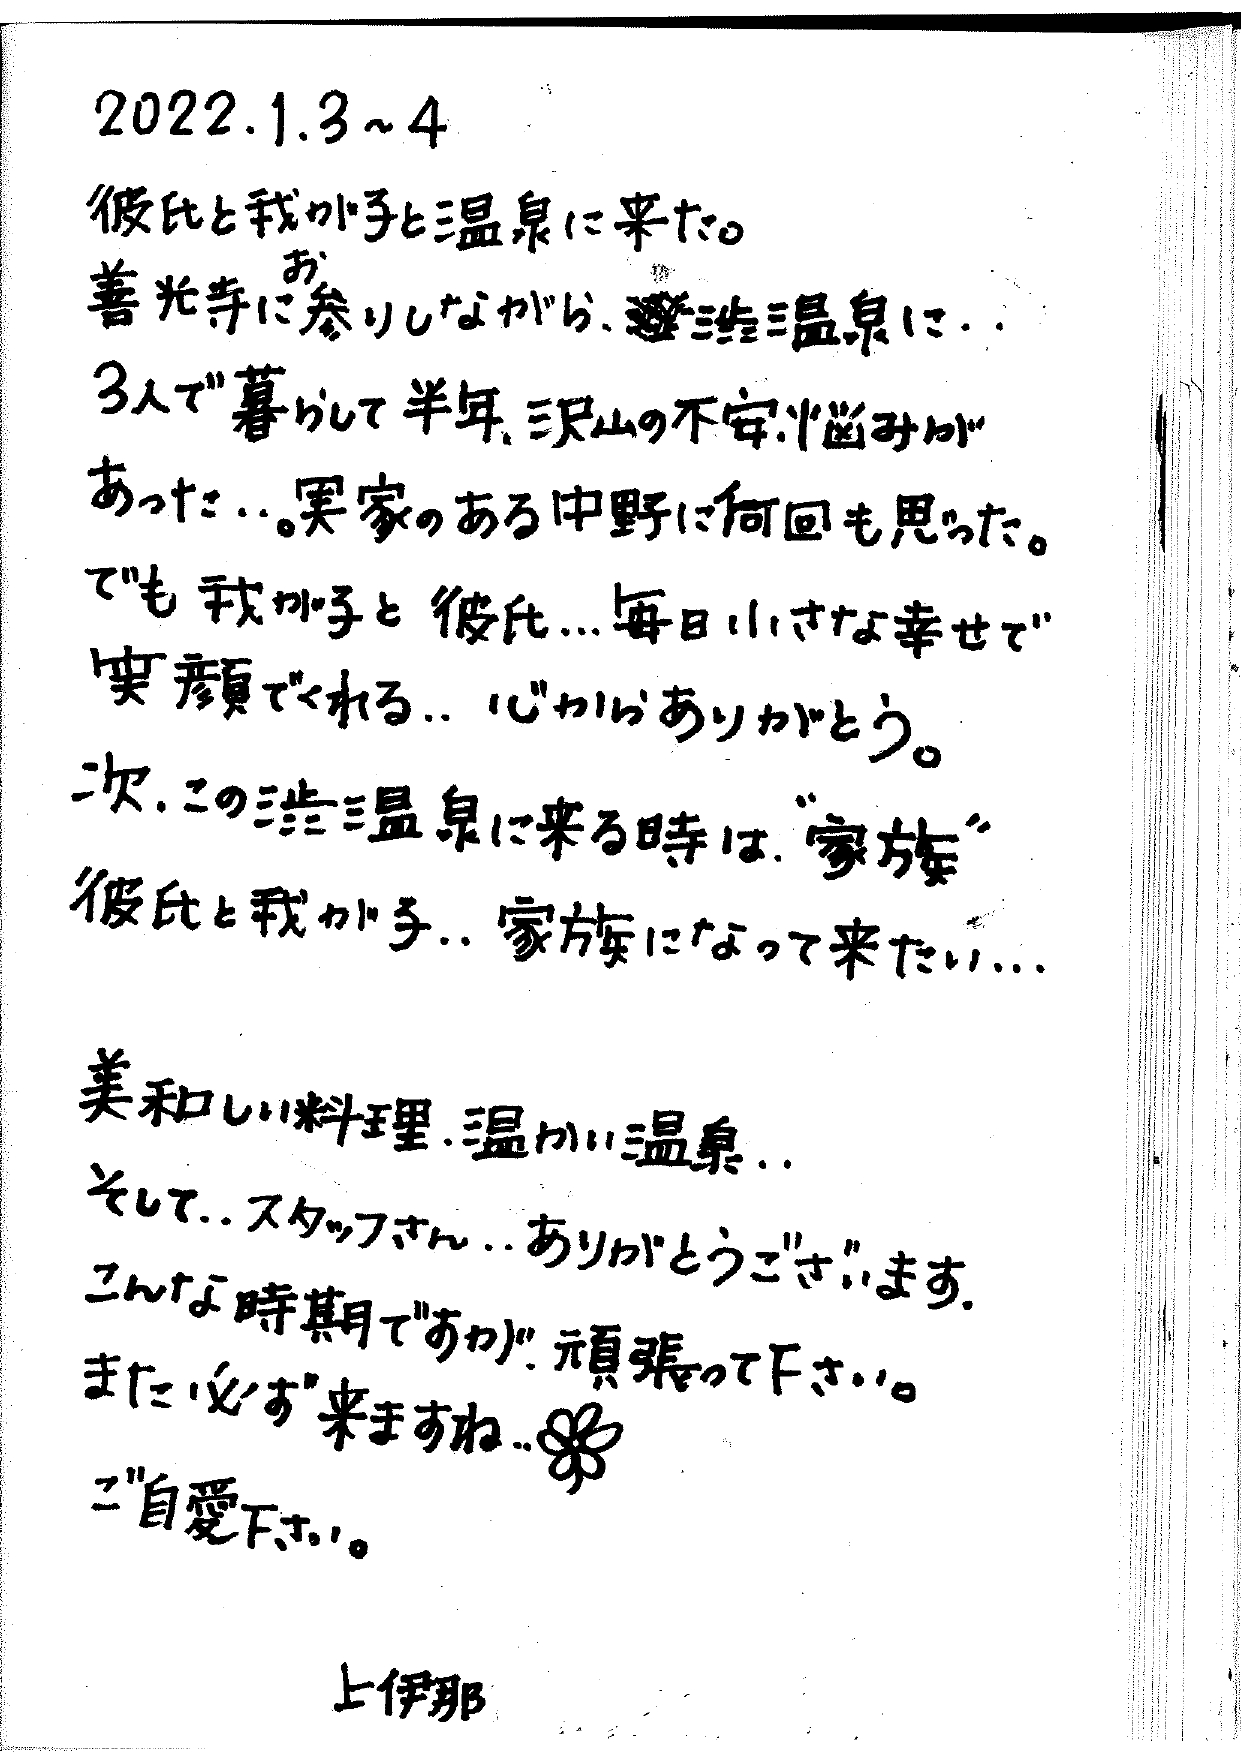 2022.1.3~4
彼氏と我が子と温泉に来た。
善光寺にお参りしながら、渋温泉に..
3人で暮らして半年、沢山の不安、悩みが
あった...。実家のある中野に何回も思った。
でも我が子と彼氏...毎日小さな幸せで
笑顔でくれる.. 心からありがとう。
次、この渋温泉に来る時は、"家族"
彼氏と我が子.. 家族になって来たい...
美和しい料理、温かい温泉..
そして..スタッフさん..ありがとうございます.
こんな時期ですが、頑張って下さい。
また必ず来ますね..
ご自愛下さい。
上伊那